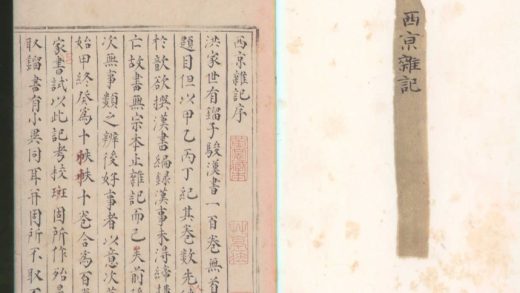 西京雜記
西京雜記序
洪家世有鎦子駿漢書一百卷無首
題目但以甲乙丙丁紀其卷數先
於歆欲撰漢書編錄漢事未得締
亡故書無宗本止雜記而已失前後
次無事類之辨後好事者以意次
始甲終癸為十帙帙十卷合為百
家書試以此記考校班固所作殆
取鎦書有小異同耳并固所不取